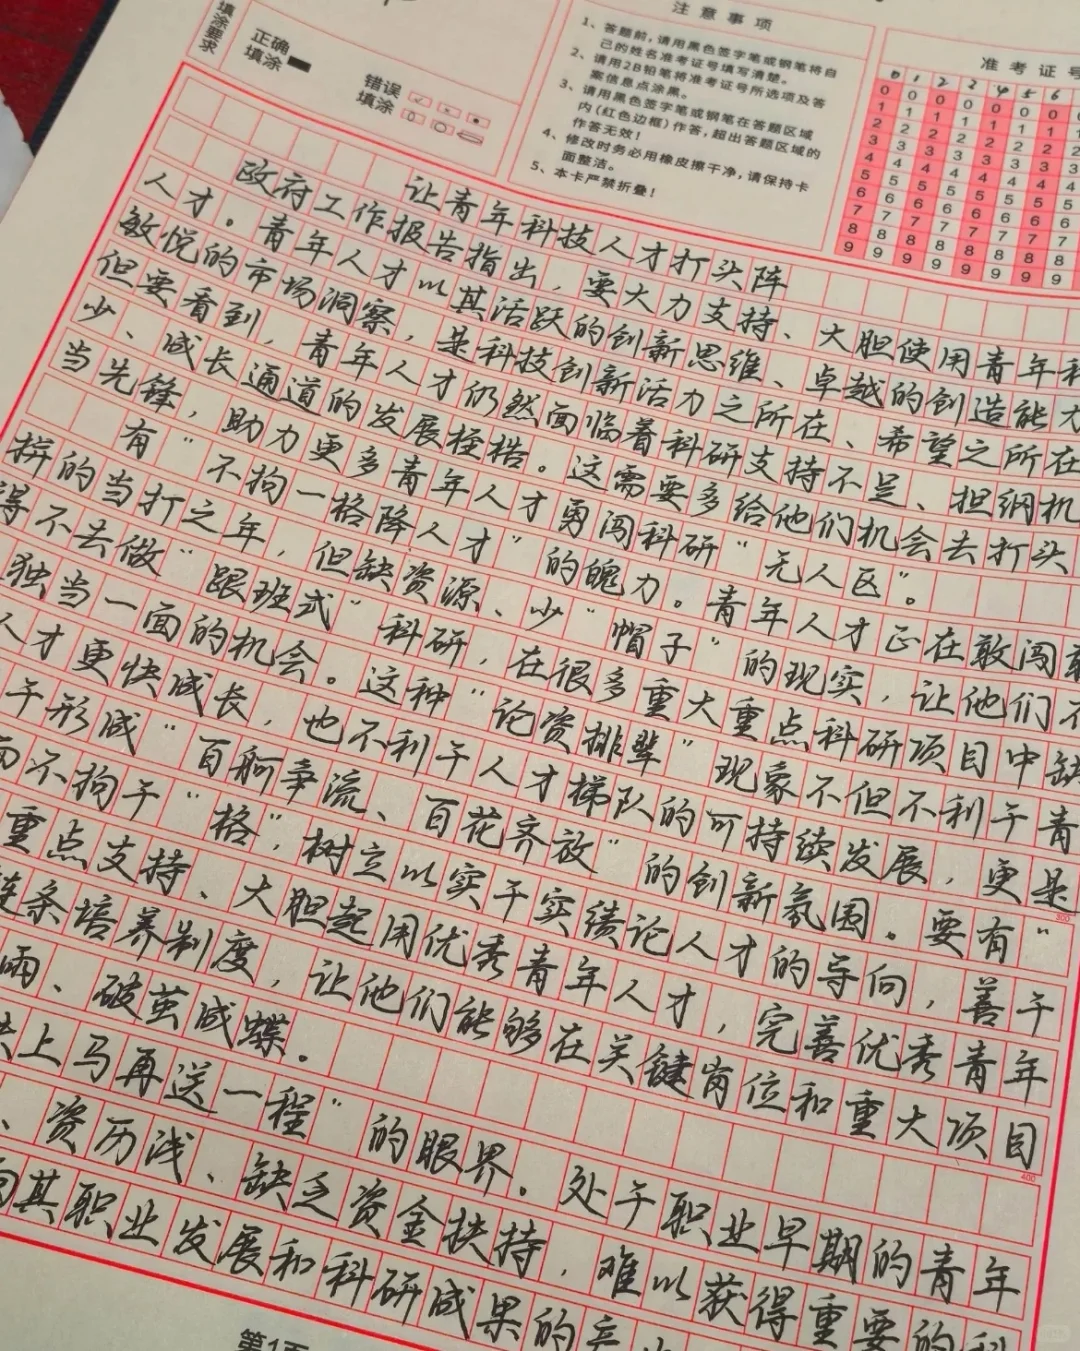 填涂要求
正确填涂
错误填涂
注意事项
1、答题前,请用黑色签字笔或钢笔将自
己的姓名准考证号填写清楚。
2、请用2B铅笔将准考证号所选项及答
案信息点涂黑。
3、请用黑色签字笔或钢笔在答题区域
内(红色边框)作答,超出答题区域的
作答无效!
4、修改时务必用橡皮擦干净,请保持卡
面整洁。
5、本卡严禁折叠!
准考证号
0 1 2 3 4 5 6
0 0 0 0 0 0 0
1 1 1 1 1 1 1
2 2 2 2 2 2 2
3 3 3 3 3 3 3
4 4 4 4 4 4 4
5 5 5 5 5 5 5
6 6 6 6 6 6 6
7 7 7 7 7 7 7
8 8 8 8 8 8 8
9 9 9 9 9 9 9
让青年科技人才打头阵
政府工作报告指出,要大力支持、大胆使用青年科
人才。青年人才以其活跃的创新思维、卓越的创造能力
敏悦的市场洞察,是科技创新活力之所在、希望之所在
但要看到,青年人才仍然面临着科研支持不足、担纲机
少、成长通道的发展桎梏。这需要多给他们机会去打头
当先锋,助力更多青年人才勇闯科研“无人区”。
有“不拘一格降人才”的魄力。青年人才正在敢闯敢
拼的当打之年,但缺资源、少“帽子”的现实,让他们不
得不去做“跟班式”科研,在很多重大重点科研项目中缺
独当一面的机会。这种“论资排辈”现象不但不利于青
人才更快成长,也不利于人才梯队的可持续发展,更是
于形成“百舸争流、百花齐放”的创新氛围。要有“
300
而不拘于“格”,树立以实干实绩论人才的导向,善于
重点支持、大胆起用优秀青年人才,完善优秀青年
链条培养制度,让他们能够在关键岗位和重大项目
雨、破茧成蝶。
400
上马再送一程”的眼界。处于职业早期的青年
、资历浅、缺乏资金扶持,难以获得重要的科
其职业发展和科研成果的产
第1页